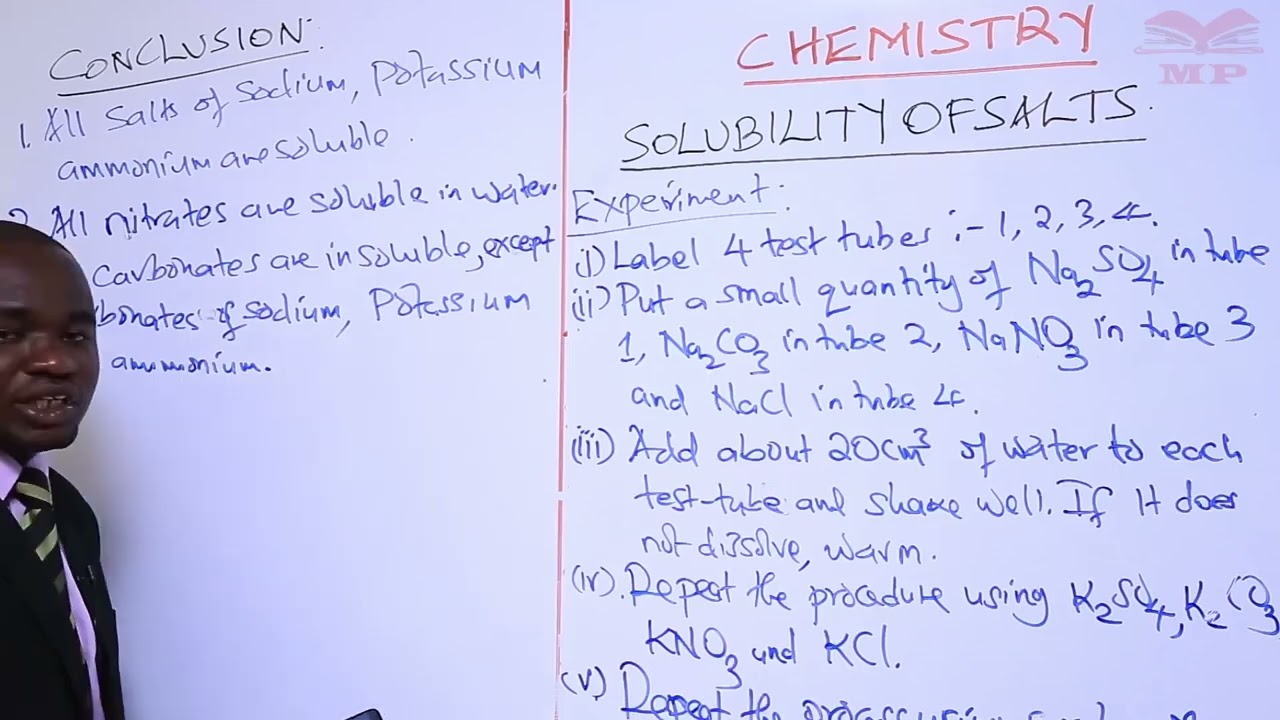 CONCLUSION:
1. All salts of sodium, Potassium
ammonium are soluble.
2. All nitrates are soluble in water.
carbonates are insoluble, except
bonates of sodium, Potassium
ammonium.
CHEMISTRY
MP
SOLUBILITY OF SALTS.
Experiment:
(i) Label 4 test tubes :- 1, 2, 3, 4.
(ii) Put a small quantity of Na₂SO₄ in tube
1, Na₂CO₃ in tube 2, NaNO₃ in tube 3
and NaCl in tube 4.
(iii) Add about 20cm³ of water to each
test-tube and shake well. If it does
not dissolve, warm.
(iv). Repeat the procedure using K₂SO₄, K₂CO₃
KNO₃ and KCl.
(v) Repeat the